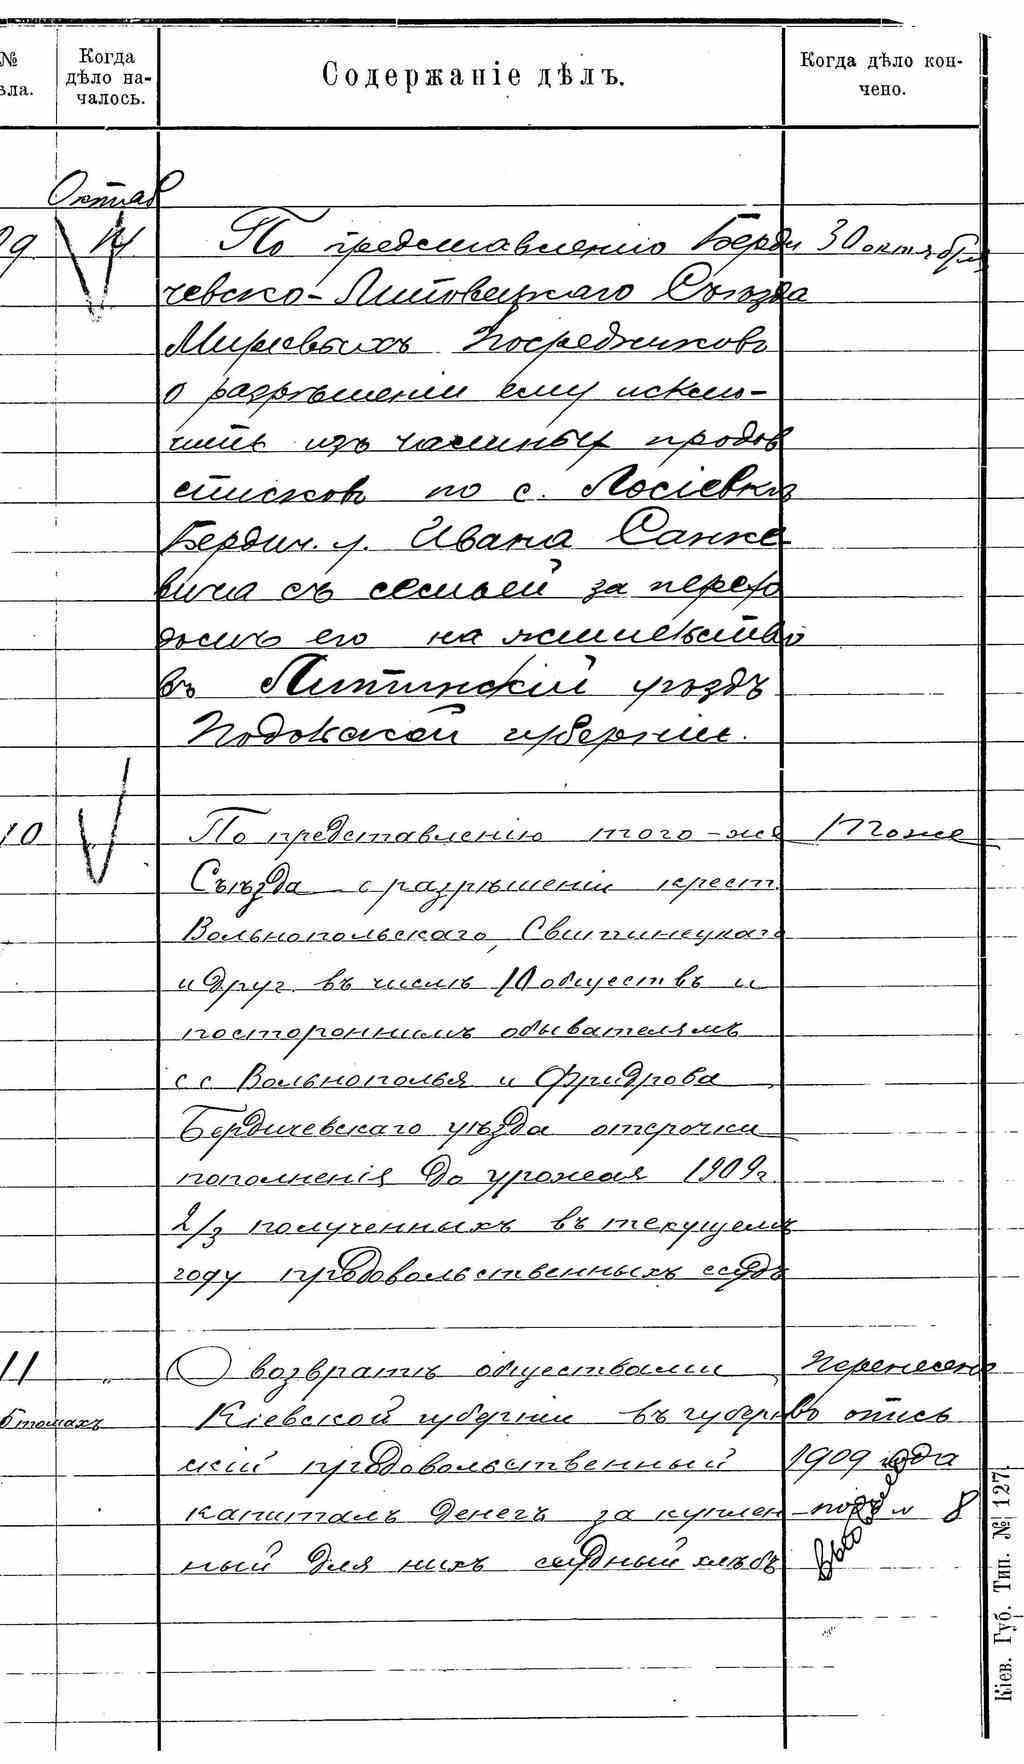 №
ѣла.
Когда
дѣло на-
чалось.
Содержаніе дѣлъ.
Когда дѣло кон-
чено.
Октяб
09. 14. По представленію Берди 30 октября
чевско-Липовецкаго Съѣзда
Мировыхъ Посредниковъ
о разрѣшеніи ему исклю-
чить изъ частныхъ продов
списковъ по с. Лосіевкѣ
Бердич. у. Ивана Санке-
вича съ семьей за перехо
домъ его на жительство
въ Литинскій уѣздъ
Подольской губерніи.
10 По представленію того-же Тоже
Съѣзда о разрѣшеніи крест.
Вольнопольскаго, Свитинецкаго
и друг. въ числѣ 10 обществъ и
постороннимъ обывателямъ
с с Вольнополья и Фридрова
Бердичевскаго уѣзда отсрочки
пополненія до урожая 1909 г.
2/3 полученныхъ въ текущемъ
году продовольственныхъ ссудъ
11 " О возвратѣ обществами Перенесено
6 томахъ Кіевской губерніи въ губерн въ опись
скій продовольственный 1909 года
капиталъ денегъ за куплен- подъ № 8
ный для нихъ ссудный хлѣбъ
Кіев. Губ. Тип. № 127.